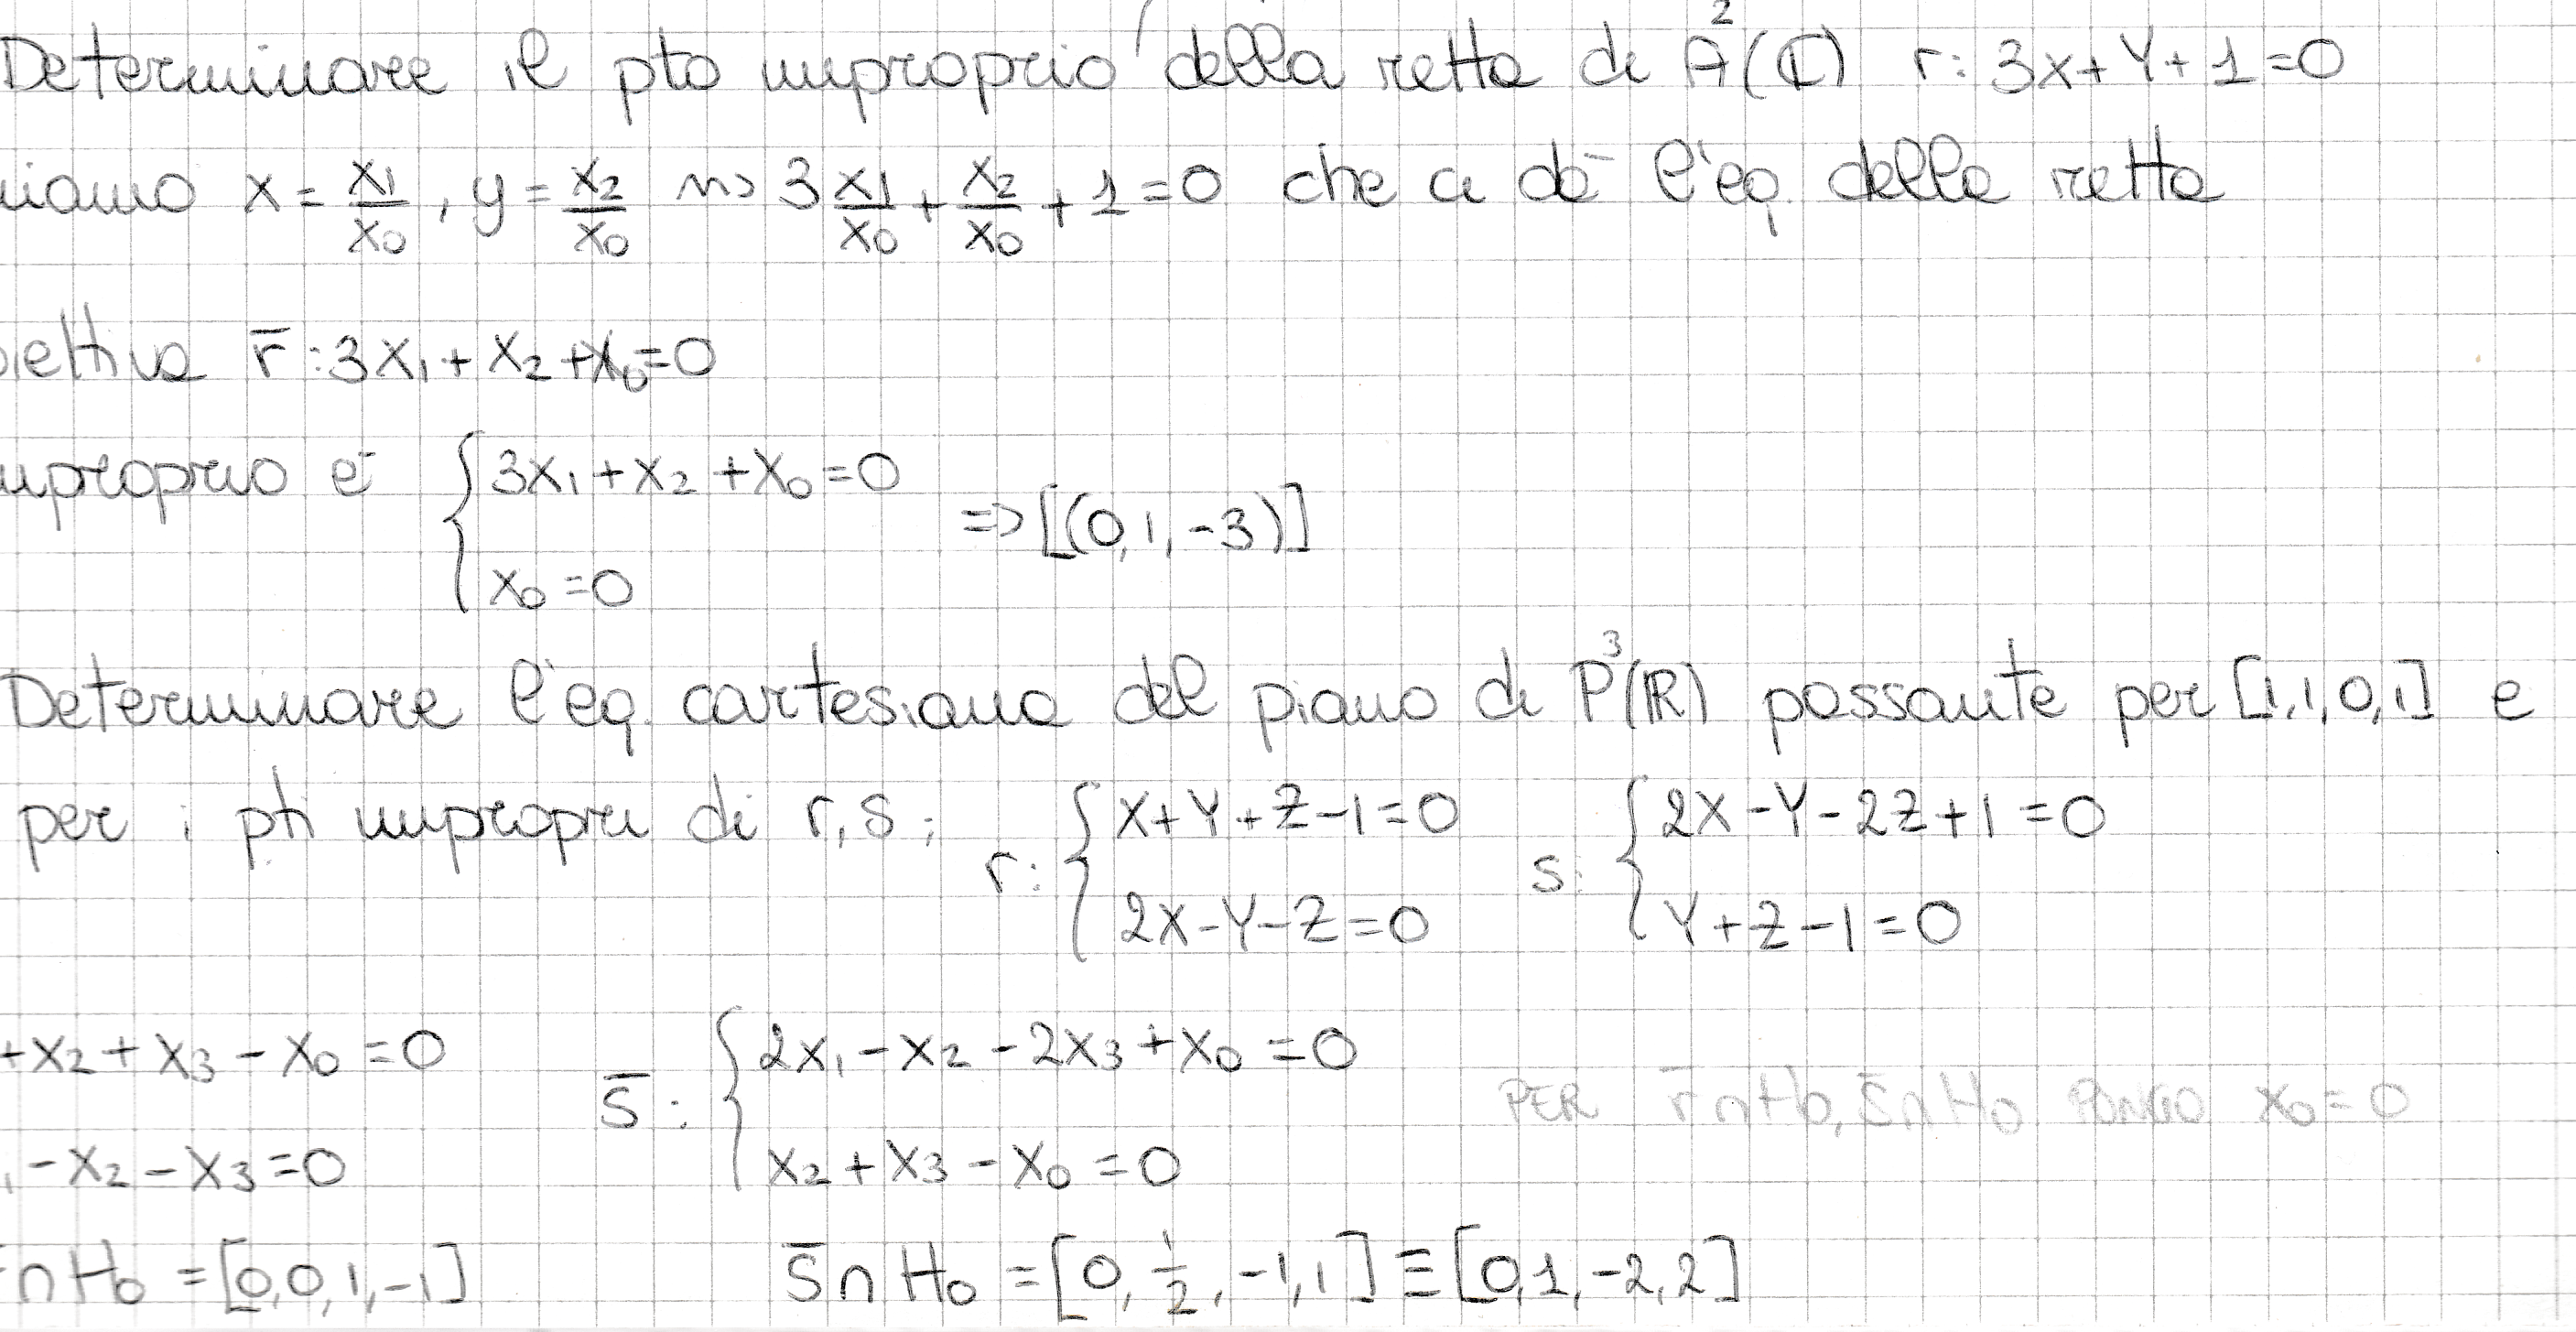 Determinare il pto improprio della retta di A²(ℂ) r: 3x+Y+1=0
niamo x = x₁/x₀, y = x₂/x₀ ⇝ 3 x₁/x₀ + x₂/x₀ + 1 = 0 che ci dà l'eq. della retta
iettiva r̄: 3x₁+x₂+x₀=0
mproprio è { 3x₁+x₂+x₀=0
x₀=0
=> [(0,1,-3)]
Determinare l'eq. cartesiana del piano di P³(ℝ) passante per [1,1,0,1] e
per i pti impropri di r,s;
r: { X+Y+Z-1=0
2X-Y-Z=0
s: { 2X-Y-2Z+1=0
Y+Z-1=0
+x₂+x₃-x₀=0
-x₂-x₃=0
s̄: { 2x₁-x₂-2x₃+x₀=0
x₂+x₃-x₀=0
PER r̄∩H₀, s̄∩H₀ PONGO x₀=0
∩H₀ = [0,0,1,-1]
s̄∩H₀ = [0, 1/2, -1, 1] ≡ [0,1,-2,2]